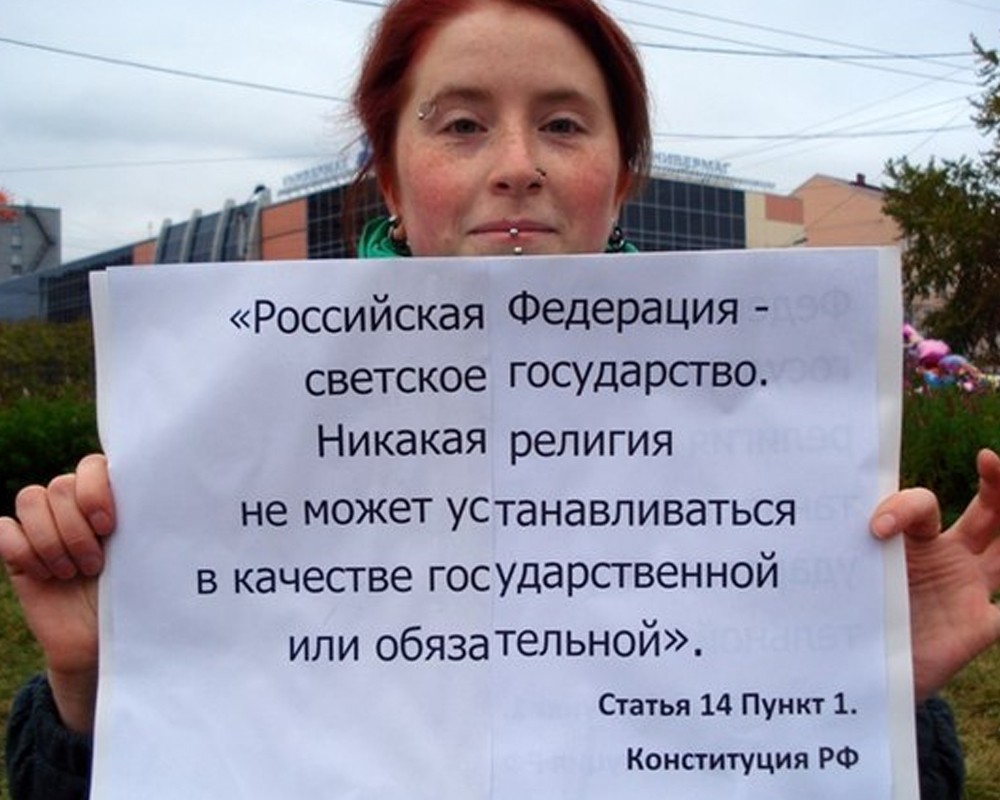 УНИВЕРМАГ
«Российская Федерация -
светское государство.
Никакая религия
не может устанавливаться
в качестве государственной
или обязательной».
Статья 14 Пункт 1.
Конституция РФ